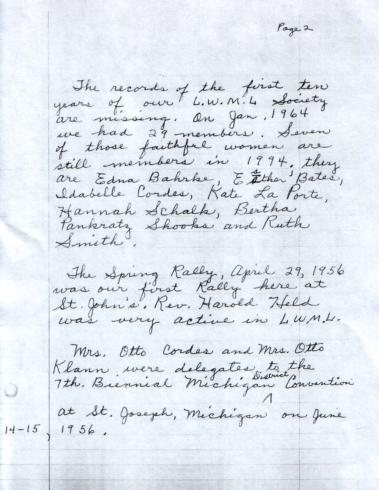 Page 2
The records of the first ten
years of our L.W.M.L Society
are missing. On Jan. 1964
we had 29 members. Seven
of those faithful women are
still members in 1994. they
are Edna Bahrke, Esther Bates,
Idabelle Cordes, Kate La Porte,
Hannah Schalk, Bertha
Pankratz Shooks and Ruth
Smith.
The Spring Rally, April 29, 1956
was our first Rally here at
St. John's. Rev. Harold Held
was very active in L.W.M.L.
Mrs. Otto Cordes and Mrs. Otto
Klann were delegates to the
7th. Biennial Michigan District Convention
at St. Joseph, Michigan on June
14-15, 1956.